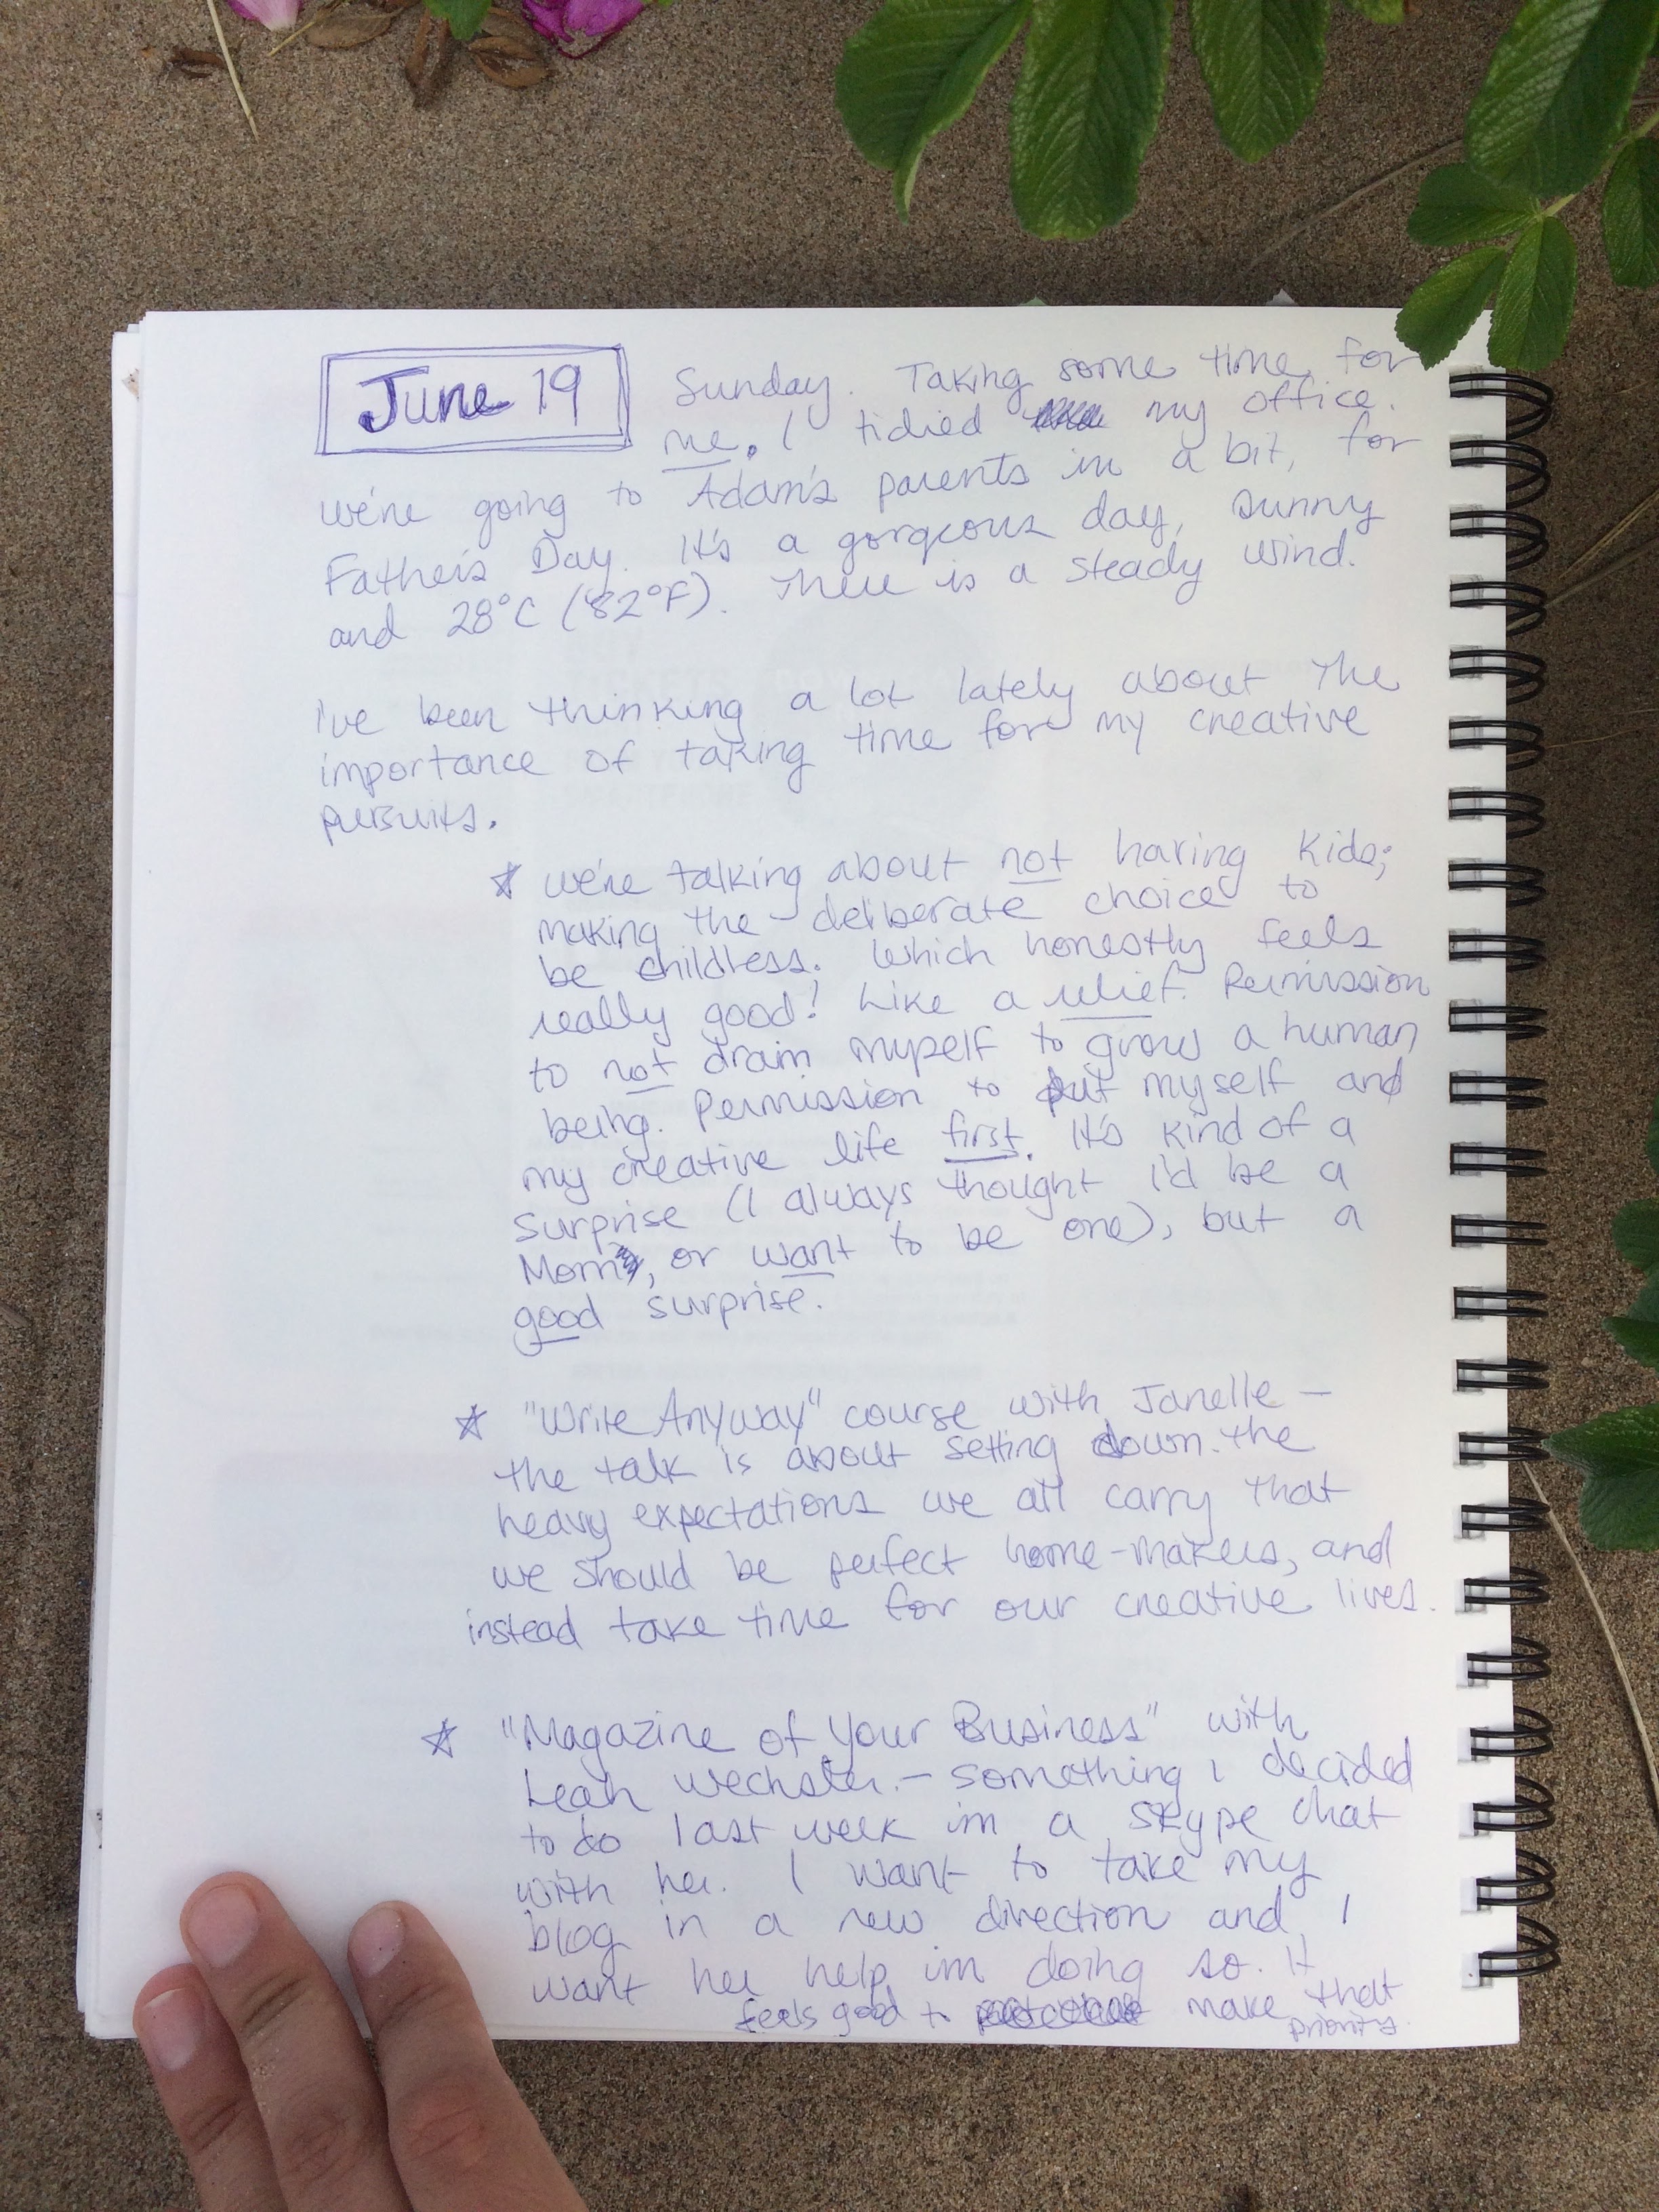 June 19
Sunday. Taking some time for
me. I tidied my office.
We're going to Adam's parents in a bit, for
Father's Day. It's a gorgeous day, sunny
and 28°C (82°F). There is a steady wind.
I've been thinking a lot lately about the
importance of taking time for my creative
pursuits.
☆ We're talking about not having kids;
making the deliberate choice to
be childless. Which honestly feels
really good! Like a relief. Permission
to not drain myself to grow a human
being. Permission to put myself and
my creative life first. It's kind of a
surprise (I always thought I'd be a
Mom, or want to be one), but a
good surprise.
☆ "Write Anyway" course with Janelle –
the talk is about setting down the
heavy expectations we all carry that
we should be perfect home-makers, and
instead take time for our creative lives.
☆ "Magazine of Your Business" with
Leah Wechsler – something I decided
to do last week in a Skype chat
with her. I want to take my
blog in a new direction and I
want her help in doing so. It
feels good to make that
priority.